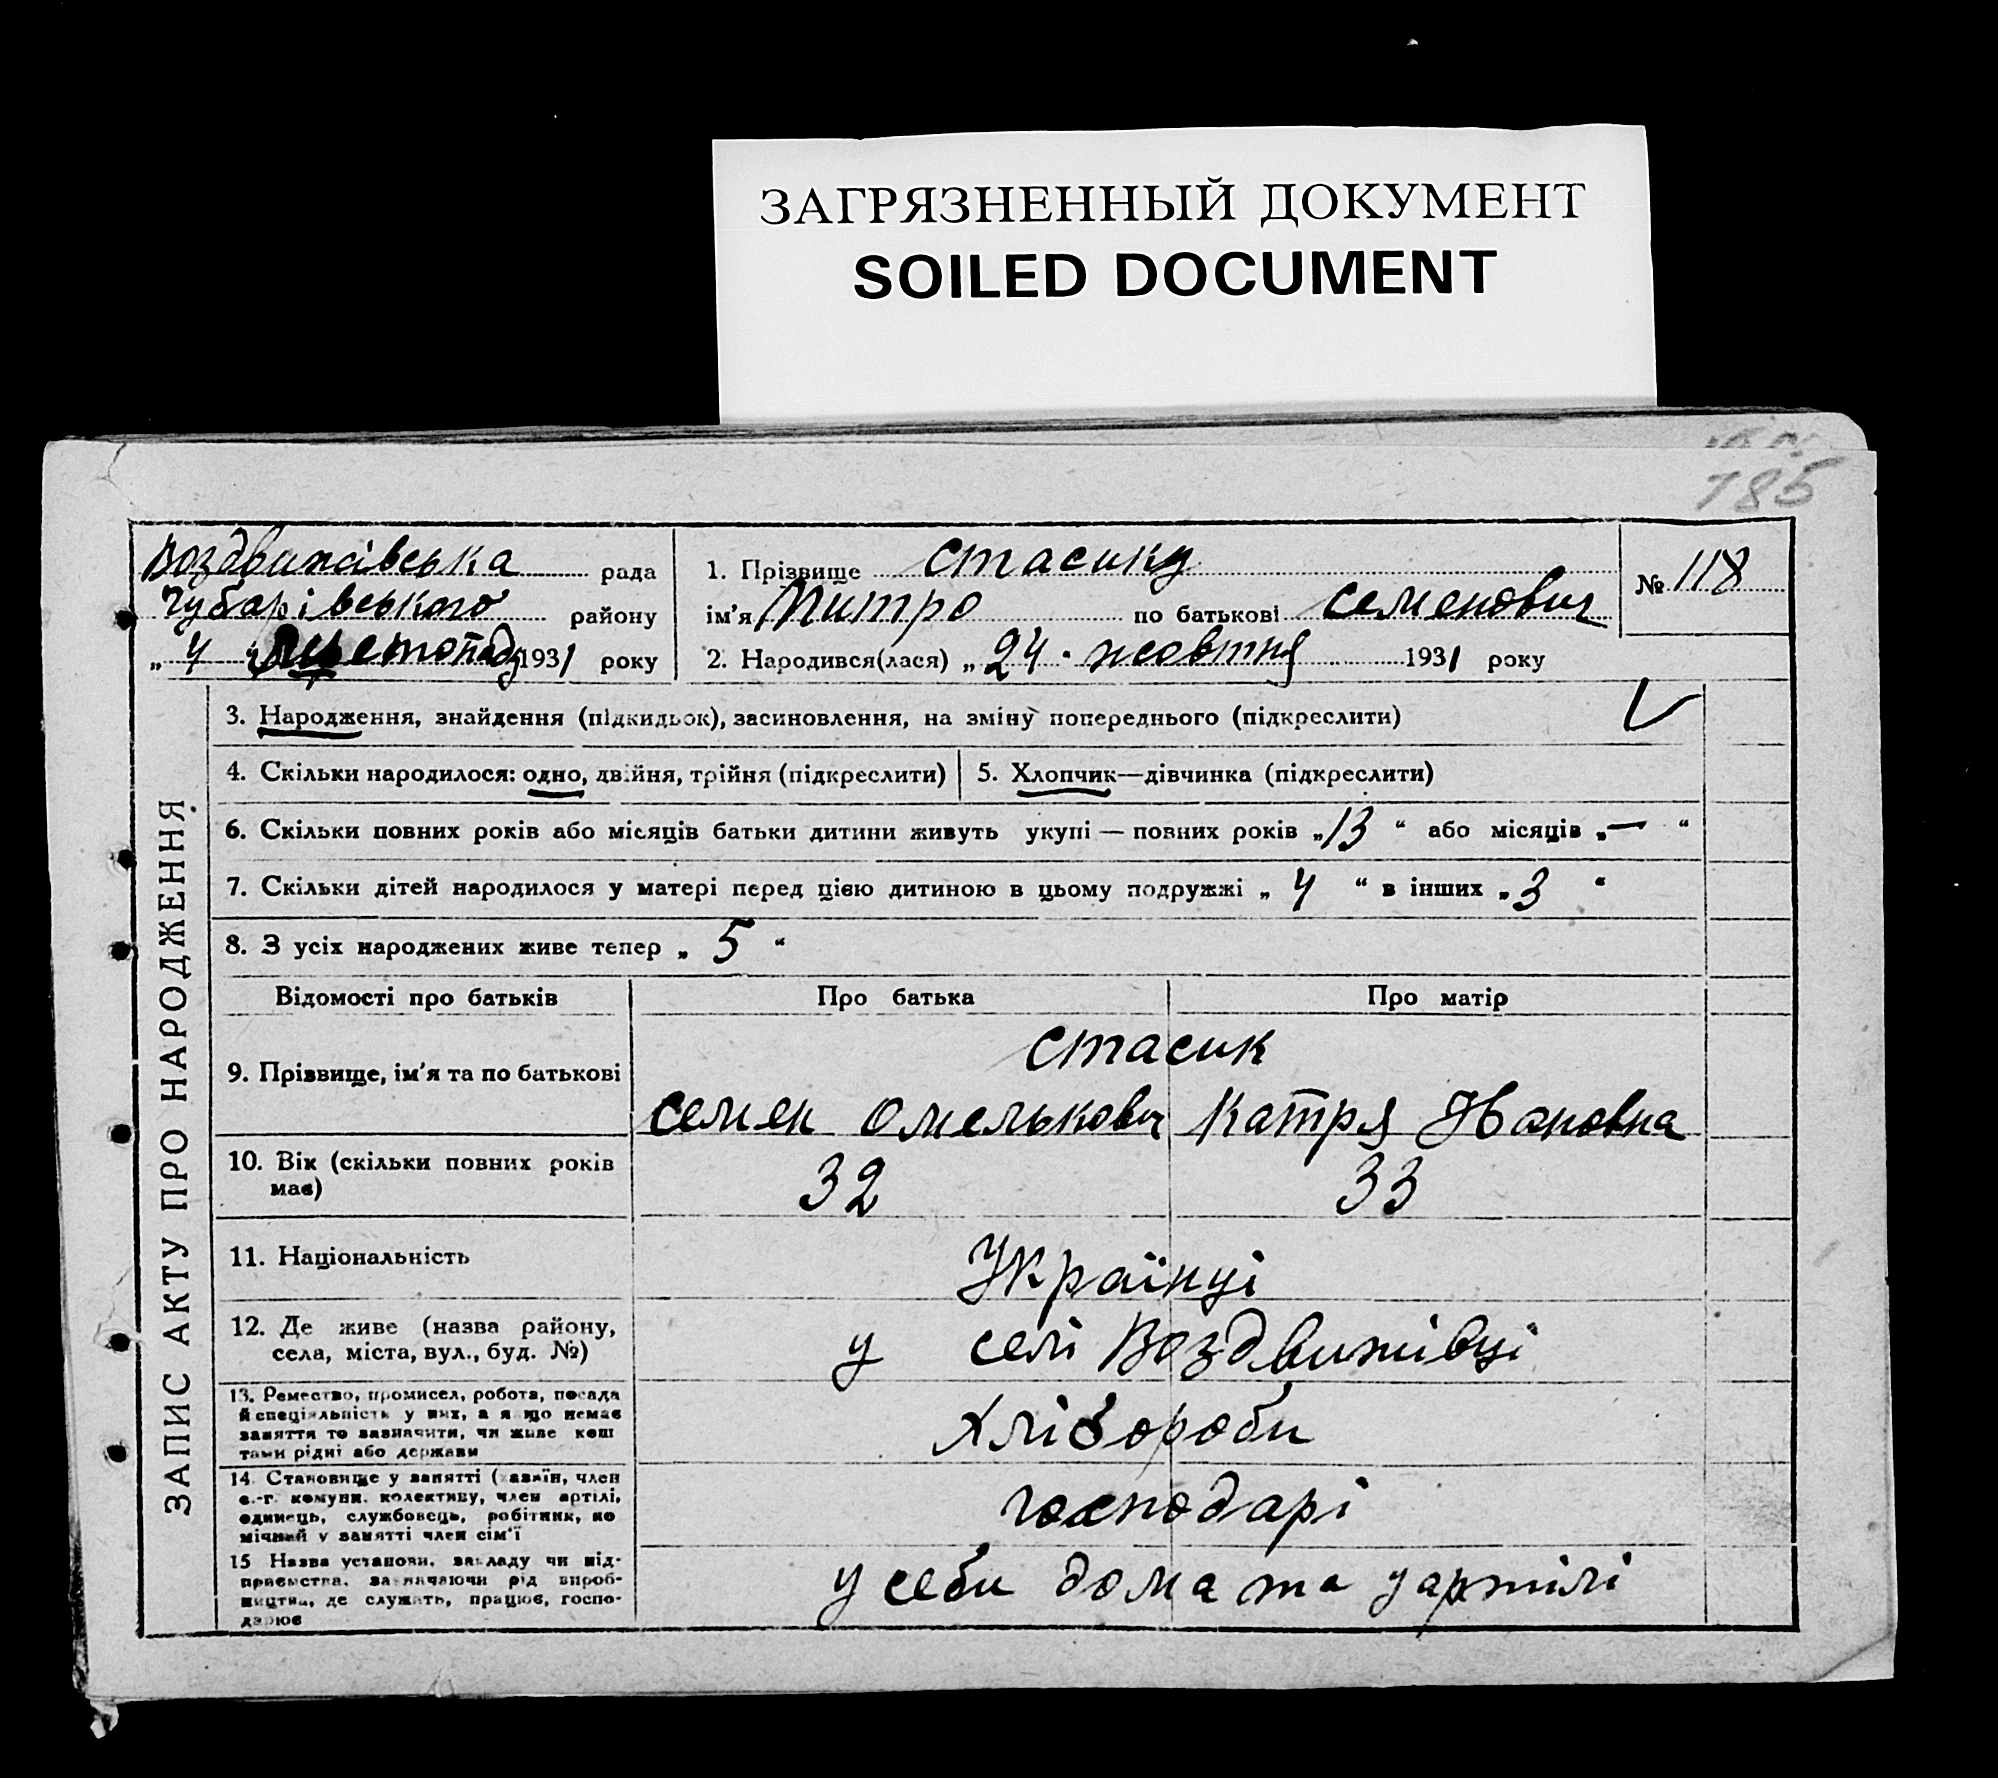 ЗАГРЯЗНЕННЫЙ ДОКУМЕНТ
SOILED DOCUMENT
785
Воздвижівська рада
Чубарівського району
„ 4 “ листопаду 1931 року
1. Прізвище Стасику
ім'я Митро по батькові Семенович
2. Народився(лася) „ 24 · жовтня 1931 року
№ 118
ЗАПИС АКТУ ПРО НАРОДЖЕННЯ
3. Народження, знайдення (підкидьок), засиновлення, на зміну попереднього (підкреслити)
4. Скільки народилося: одно, двійня, трійня (підкреслити)
5. Хлопчик—дівчинка (підкреслити)
6. Скільки повних років або місяців батьки дитини живуть укупі — повних років „ 13 “ або місяців „ — “
7. Скільки дітей народилося у матері перед цією дитиною в цьому подружжі „ 4 “ в інших „ 3 “
8. З усіх народжених живе тепер „ 5 “
Відомості про батьків Про батька Про матір
9. Прізвище, ім'я та по батькові
Стасик
Семен Омелькович Катря Івановна
10. Вік (скільки повних років
має)
32 33
11. Національність
Українці
12. Де живе (назва району,
села, міста, вул., буд. №)
у селі Воздвижівці
13. Ремество, промисел, робота, посада
й спеціяльність у них, а якщо немає
заняття то зазначити, чи живе кош
тами рідні або держави
Хлібороби
14. Становище у занятті (хазяїн, член
с.-г. комуни, колективу, член артілі,
одинець, службовець, робітник, по
мічний у занятті член сім'ї
господарі
15 Назва установи, закладу чи під-
приємства, зазначаючи рід вироб-
ництва, де служить, працює, госпо-
дарює
у себи дома та у артілі